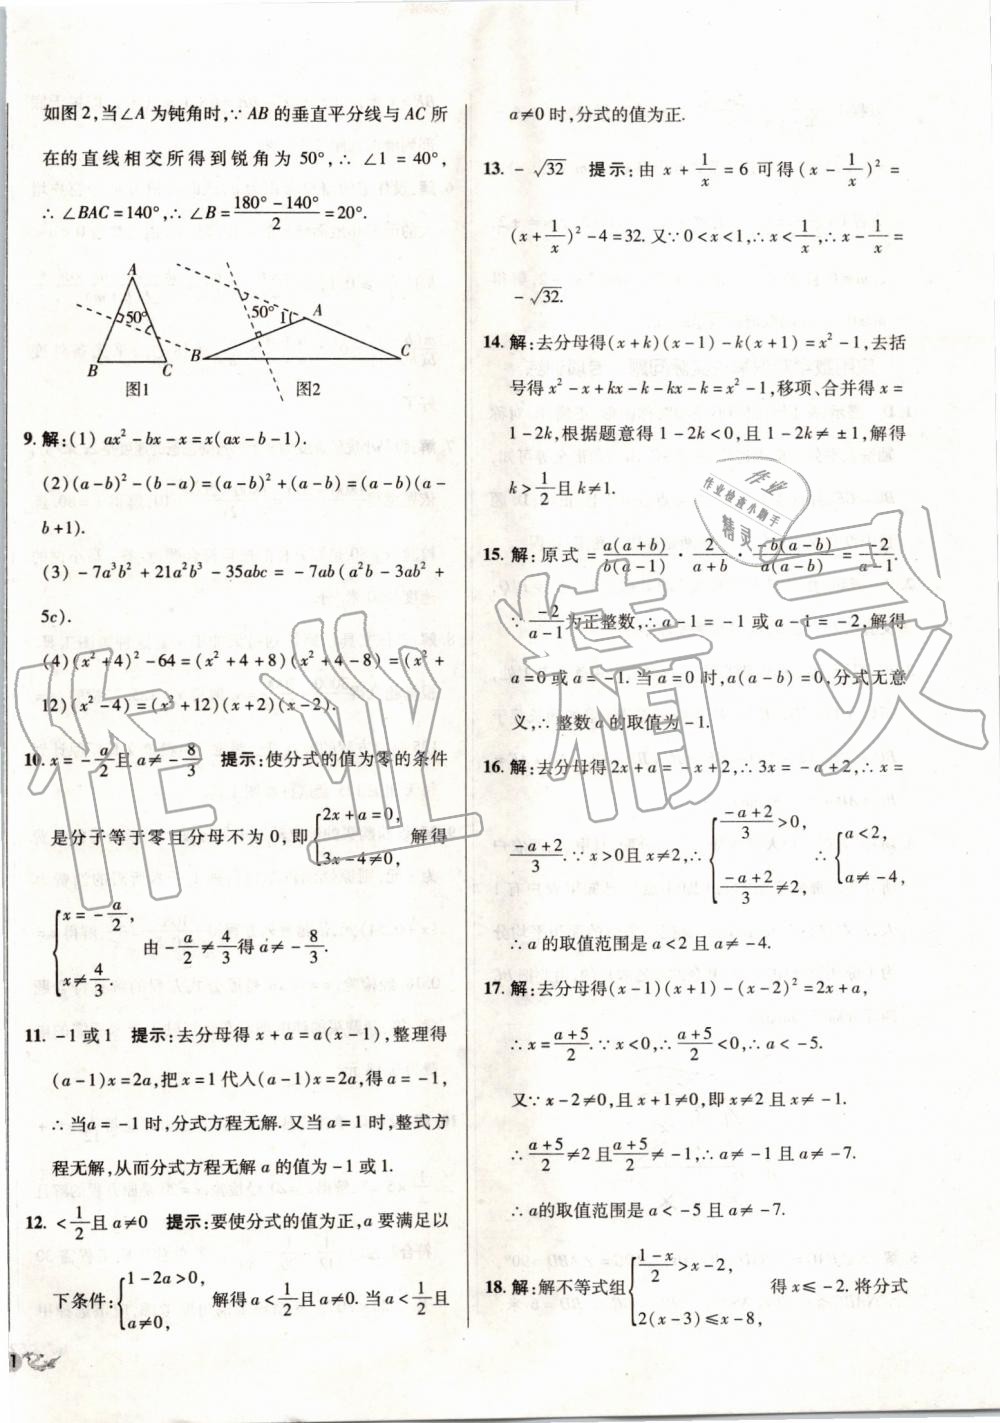 如图2,当∠A为钝角时,∵AB的垂直平分线与AC所
在的直线相交所得到锐角为50°,∴∠1=40°,
∴∠BAC=140°,∴∠B=(180°-140°)/2=20°.
A 50° B C 图1
50° 1 A B C 图2
9. 解:(1) ax²-bx-x=x(ax-b-1).
(2)(a-b)²-(b-a)=(a-b)²+(a-b)=(a-b)(a-
b+1).
(3)-7a³b²+21a²b³-35abc=-7ab(a²b-3ab²+
5c).
(4)(x²+4)²-64=(x²+4+8)(x²+4-8)=(x²+
12)(x²-4)=(x²+12)(x+2)(x-2).
10. x=-a/2且a≠-8/3 提示:使分式的值为零的条件
是分子等于零且分母不为0,即{2x+a=0, 3x-4≠0, 解得
{x=-a/2, x≠4/3. 由-a/2≠4/3得a≠-8/3.
11. -1或1 提示:去分母得x+a=a(x-1),整理得
(a-1)x=2a,把x=1代人(a-1)x=2a,得a=-1,
∴当a=-1时,分式方程无解.又当a=1时,整式方
程无解,从而分式方程无解a的值为-1或1.
12. <1/2且a≠0 提示:要使分式的值为正,a要满足以
下条件:{1-2a>0, a≠0, 解得a<1/2且a≠0.当a<1/2且
1
a≠0时,分式的值为正.
13. -√32 提示:由x+1/x=6可得(x-1/x)²=
(x+1/x)²-4=32.又∵0<x<1,∴x<1/x,∴x-1/x=
-√32.
14. 解:去分母得(x+k)(x-1)-k(x+1)=x²-1,去括
号得x²-x+kx-k-kx-k=x²-1,移项、合并得x=
1-2k,根据题意得1-2k<0,且1-2k≠±1,解得
k>1/2且k≠1.
15. 解:原式=a(a+b)/b(a-1)·2/(a+b)·-b(a-b)/a(a-b)=-2/(a-1).
∵-2/(a-1)为正整数,∴a-1=-1或a-1=-2,解得
a=0或a=-1.当a=0时,a(a-b)=0,分式无意
义,∴整数a的取值为-1.
16. 解:去分母得2x+a=-x+2,∴3x=-a+2,∴x=
(-a+2)/3.∵x>0且x≠2,∴{(-a+2)/3>0, (-a+2)/3≠2, ∴{a<2, a≠-4,
∴a的取值范围是a<2且a≠-4.
17. 解:去分母得(x-1)(x+1)-(x-2)²=2x+a,
∴x=(a+5)/2.∵x<0,∴(a+5)/2<0,∴a<-5.
又∵x-2≠0,且x+1≠0,即x≠2且x≠-1.
∴(a+5)/2≠2且(a+5)/2≠-1,∴a≠-1且a≠-7.
∴a的取值范围是a<-5且a≠-7.
18. 解:解不等式组{(1-x)/2>x-2, 2(x-3)≤x-8, 得x≤-2.将分式
作业
作业检查小助手
精灵
作业精灵